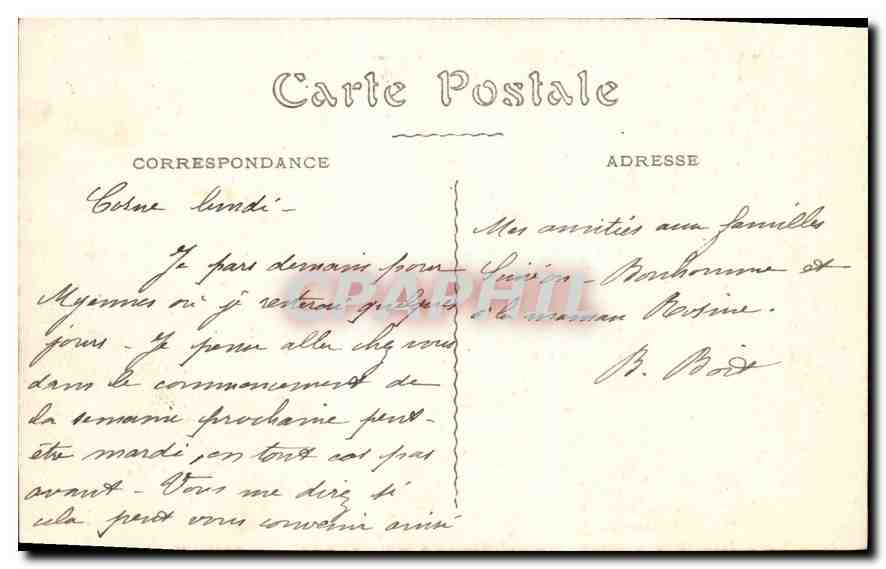 Carte Postale
CORRESPONDANCE
Cosne lundi -
Je pars demain pour
Myennes où je resterai quelques
jours - Je pense aller chez vous
dans le commencement de
la semaine prochaine peut-
être mardi, en tout cas pas
avant - Vous me direz si
cela peut vous convenir ainsi
ADRESSE
Mes amitiés aux familles
Siméon - Bonhomme et
à la maman Rosine.
B.
CPAPHIL